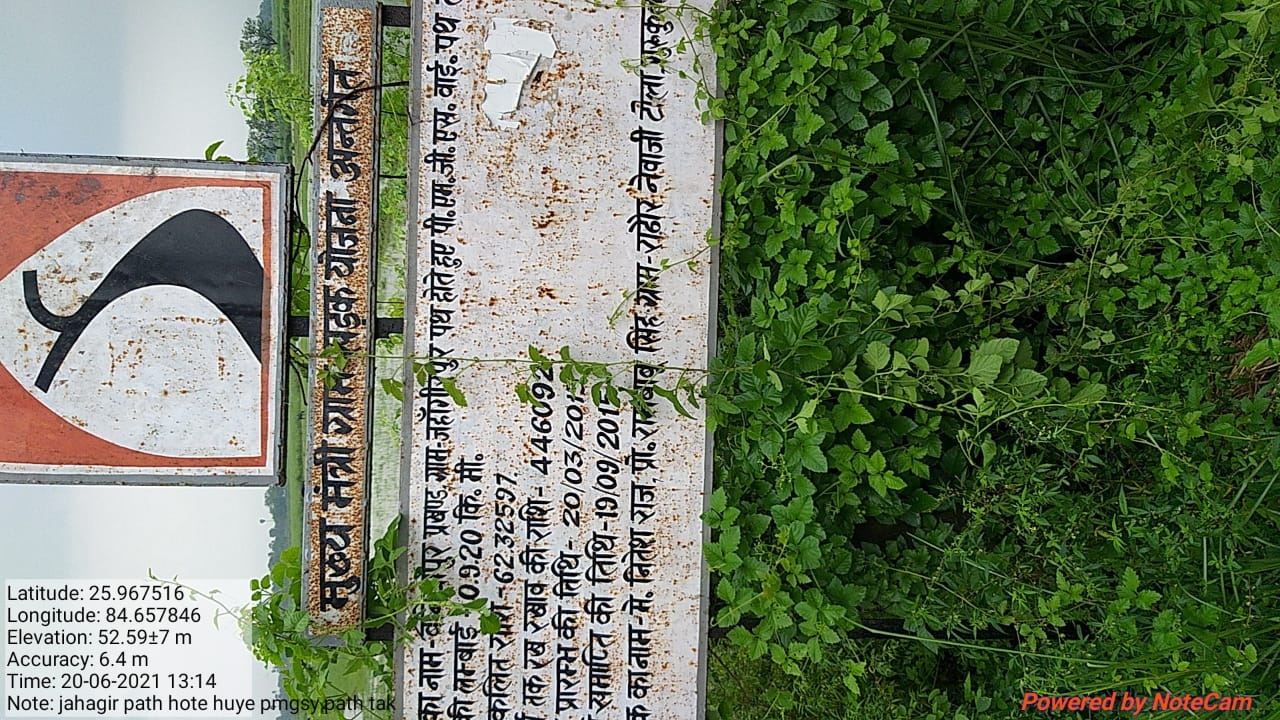 मुख्य मंत्री ग्राम सड़क योजना अन्तर्गत
का नाम
प्रखण्ड, ग्राम-जहाँगीरपुर पथ होते हुए पी.एम.जी.एस. वाई. पथ
की लम्बाई 0.920 कि. मी.
6232597
तक रख रखाव की राशि- 446092
प्रारम्भ की तिथि- 20/03/201
समाप्ति की तिथि-19/09/201
का नाम-मे. नितेश राज, प्रो. सिंह ग्राम-राढोर नेवाजी टोला,
Latitude: 25.967516
Longitude: 84.657846
Elevation: 52.59±7 m
Accuracy: 6.4 m
Time: 20-06-2021 13:14
Note: jahagir path hote huye pmgsy path tak
Powered by NoteCam